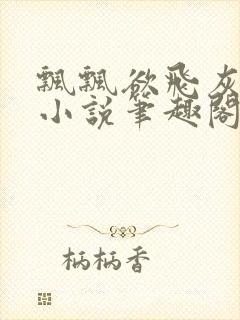 飄飄欲飛灰
小說筆趣閣
柄柄香